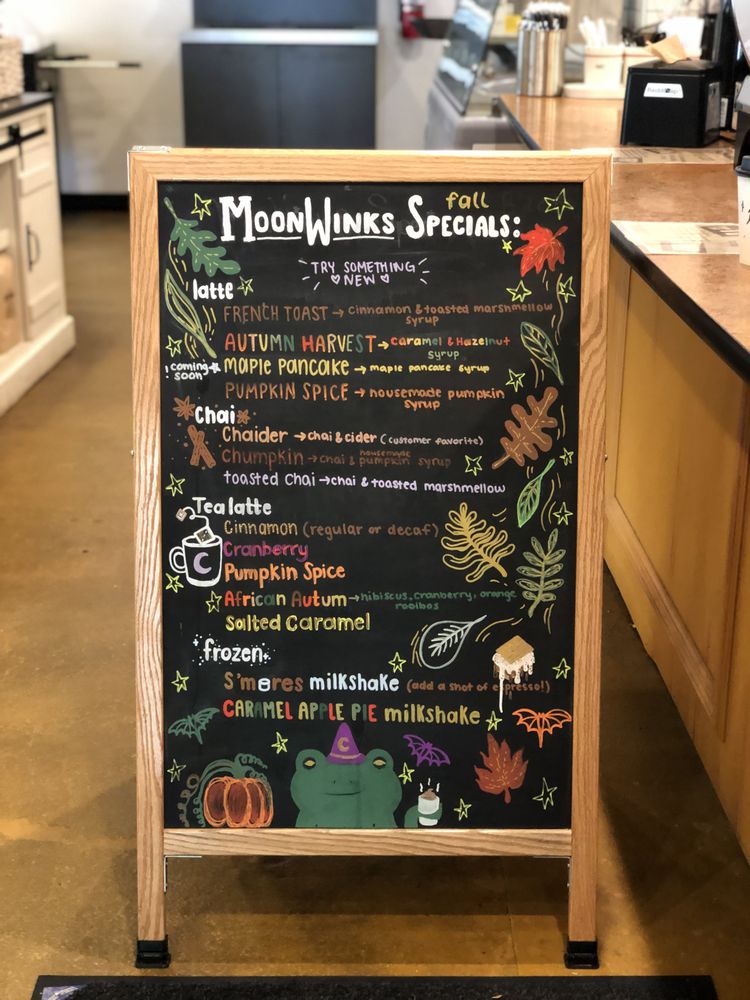 fall
MOONWINKS SPECIALS:
TRY SOMETHING
NEW
latte
FRENCH TOAST → cinnamon & toasted marshmellow
syrup
AUTUMN HARVEST → caramel & Hazelnut
syrup
! coming soon maple pancake → maple pancake syrup
PUMPKIN SPICE → housemade pumpkin
syrup
Chai
Chaider → chai & cider (customer favorite)
housemade
Chumpkin → chai & pumpkin syrup
toasted chai → chai & toasted marshmellow
Tea latte
Cinnamon (regular or decaf)
Cranberry
Pumpkin Spice
African Autum → hibiscus, cranberry, orange
rooibos
Salted Caramel
frozen
S'mores milkshake (add a shot of espresso!)
CARAMEL APPLE PIE milkshake